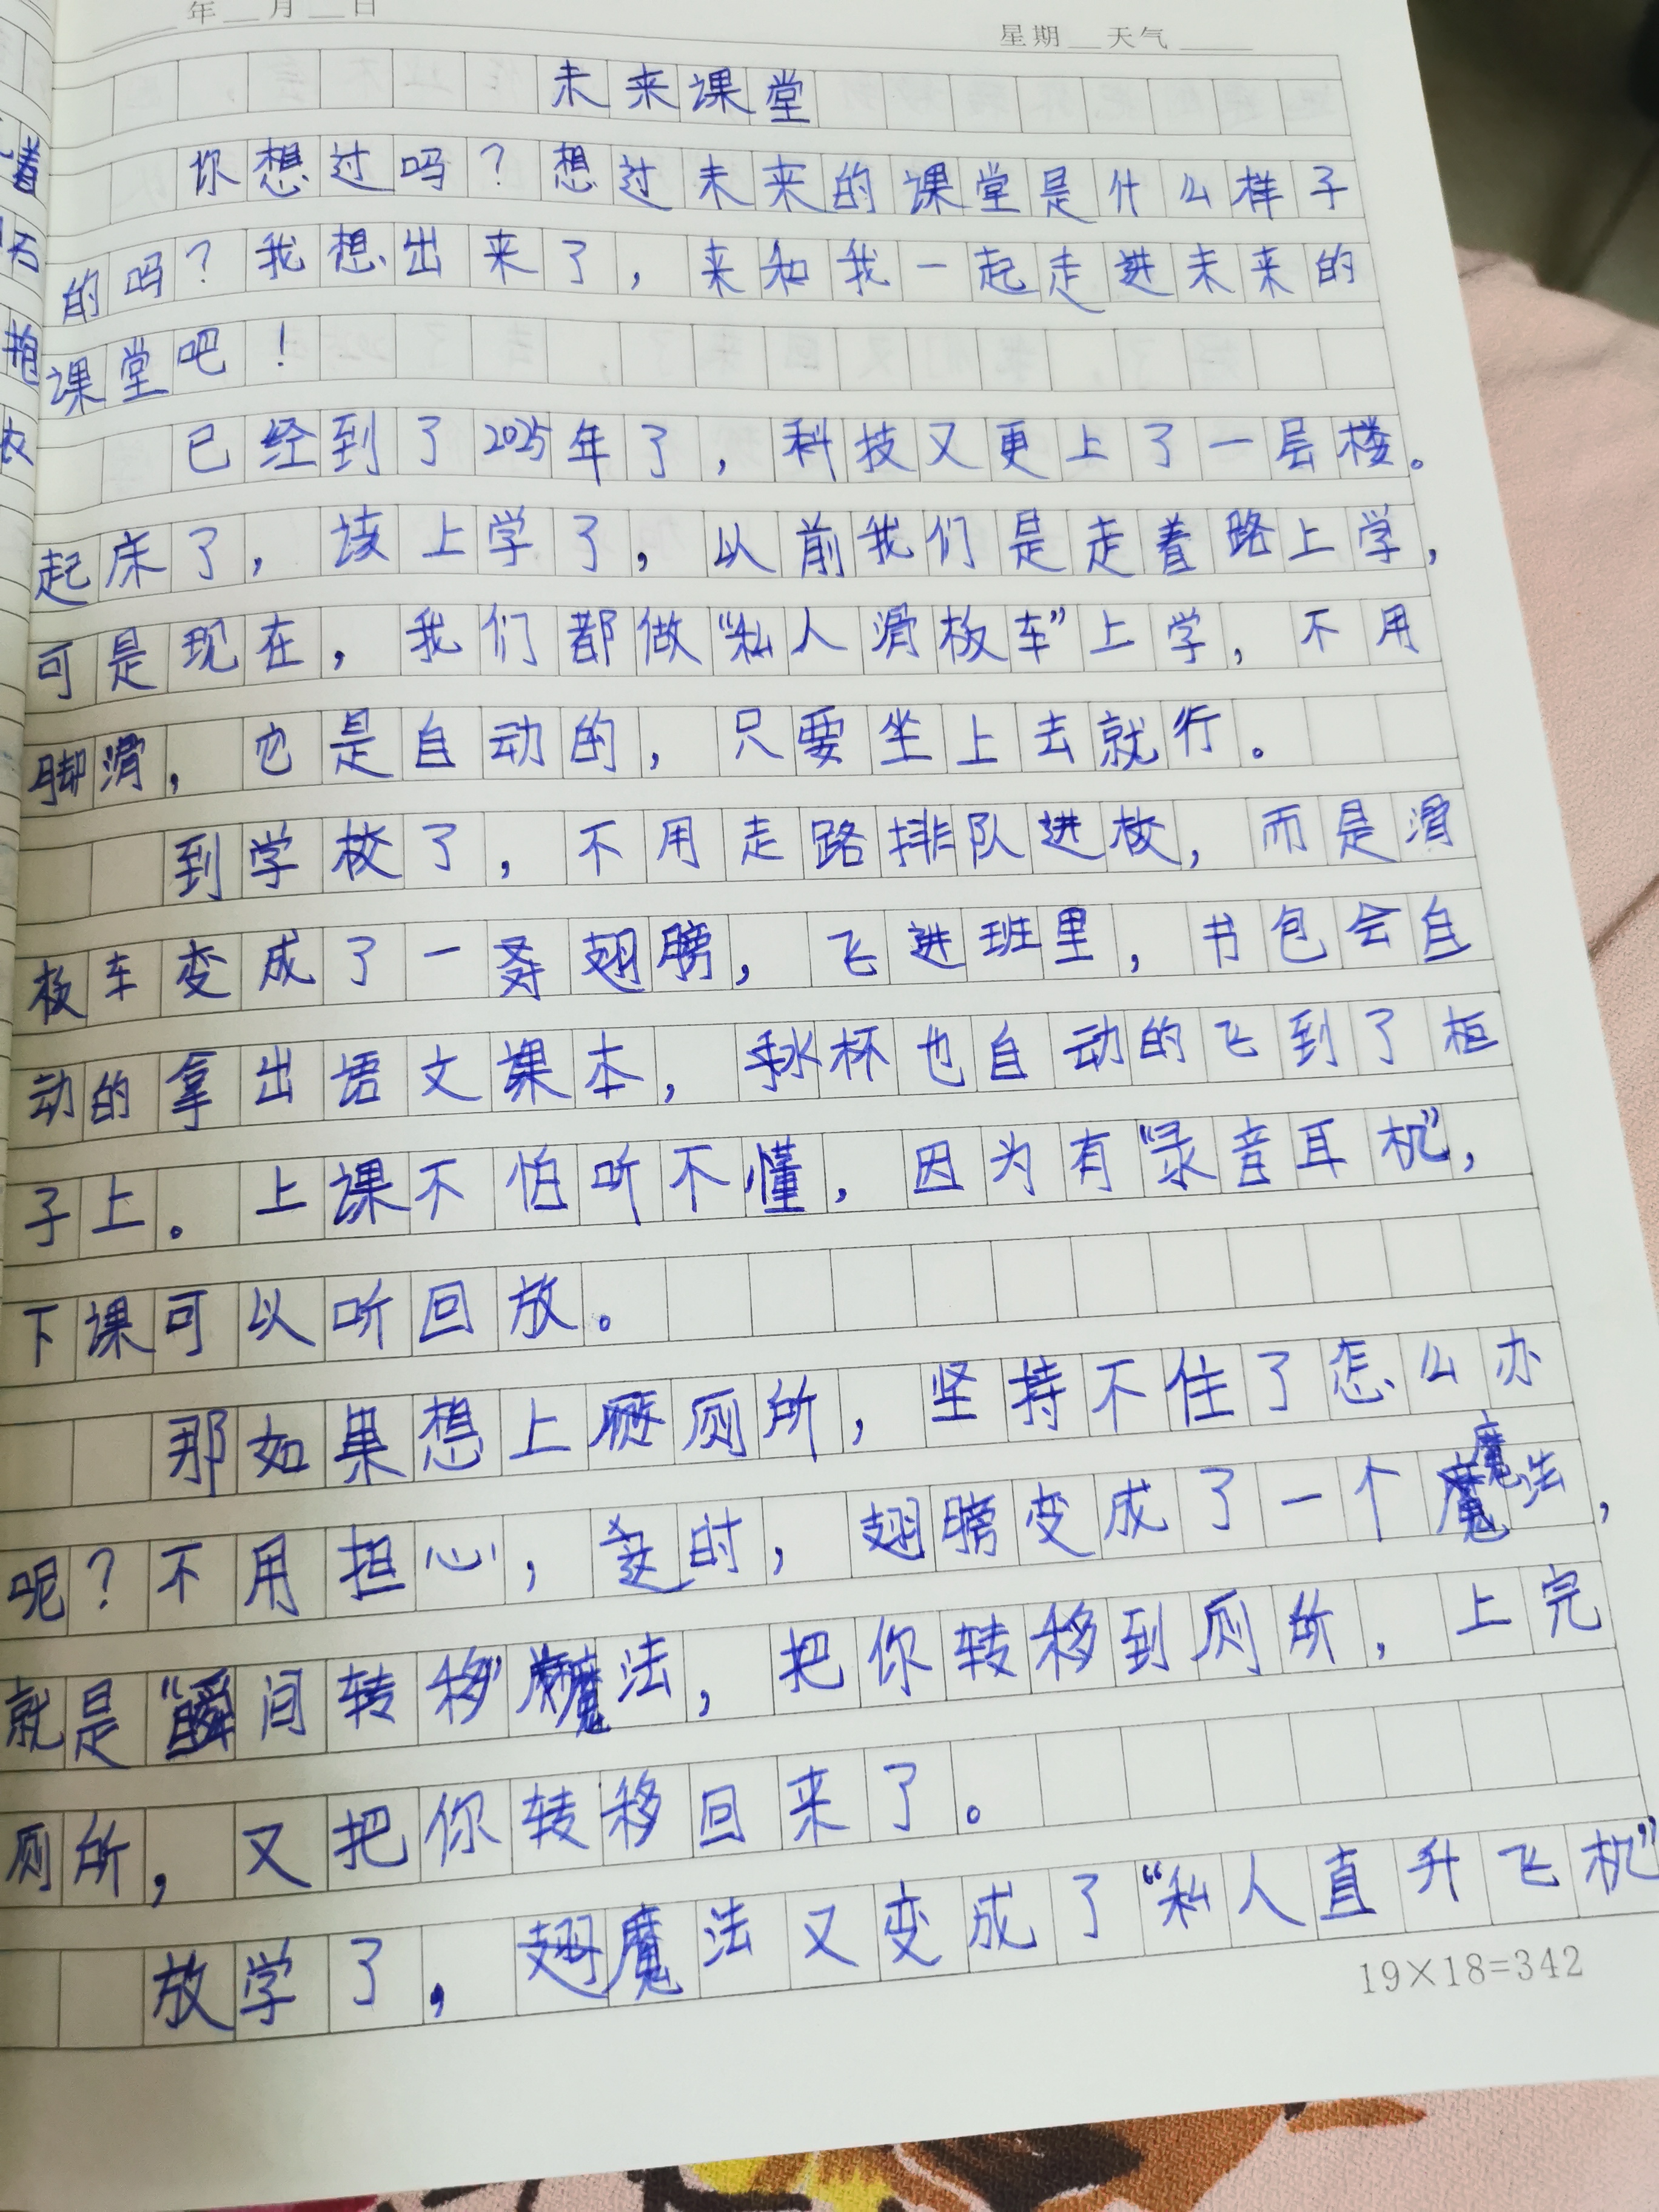 年 月 日
星期 天气
未来课堂
你想过吗？想过未来的课堂是什么样子
的吗？我想出来了，来和我一起走进未来的
课堂吧！
已经到了2025年了，科技又更上了一层楼。
起床了，该上学了，以前我们是走着路上学，
可是现在，我们都做“私人滑板车”上学，不用
脚滑，也是自动的，只要坐上去就行。
到学校了，不用走路排队进校，而是滑
板车变成了一翅膀，飞进班里，书包会自
动的拿出语文课本，水杯也自动的飞到了柜
子上。上课不怕听不懂，因为有“录音耳机”，
下课可以听回放。
那如果想上厕所，坚持不住了怎么办
呢？不用担心，这时，翅膀变成了一个魔法，
就是“瞬间转移”魔法，把你转移到厕所，上完
厕所，又把你转移回来了。
放学了，翅魔法又变成了“私人直升飞机”
19×18=342